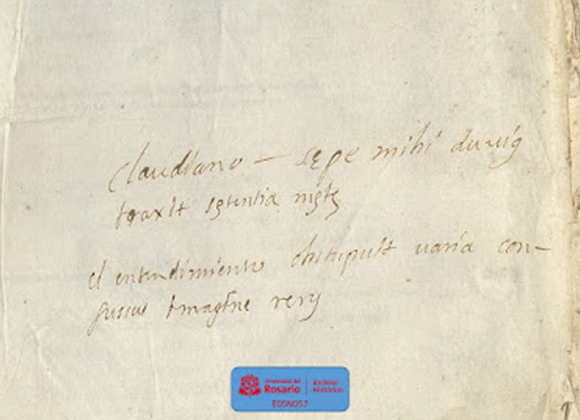 Claudiano — sepe mihi duviã
traxit sẽtentia mẽtẽ
el entendimiento obstipuit varia con-
fussus Imagine rerũ
Universidad del
Rosario
Archivo
Histórico
E05N057